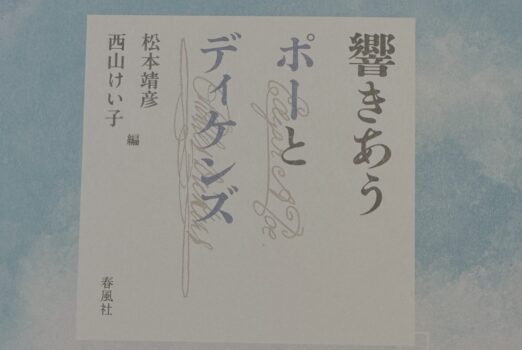 響きあう
ポーと
ディケンズ
松本靖彦
西山けい子
編
春風社
Edgar A Poe.
Charles Dickens